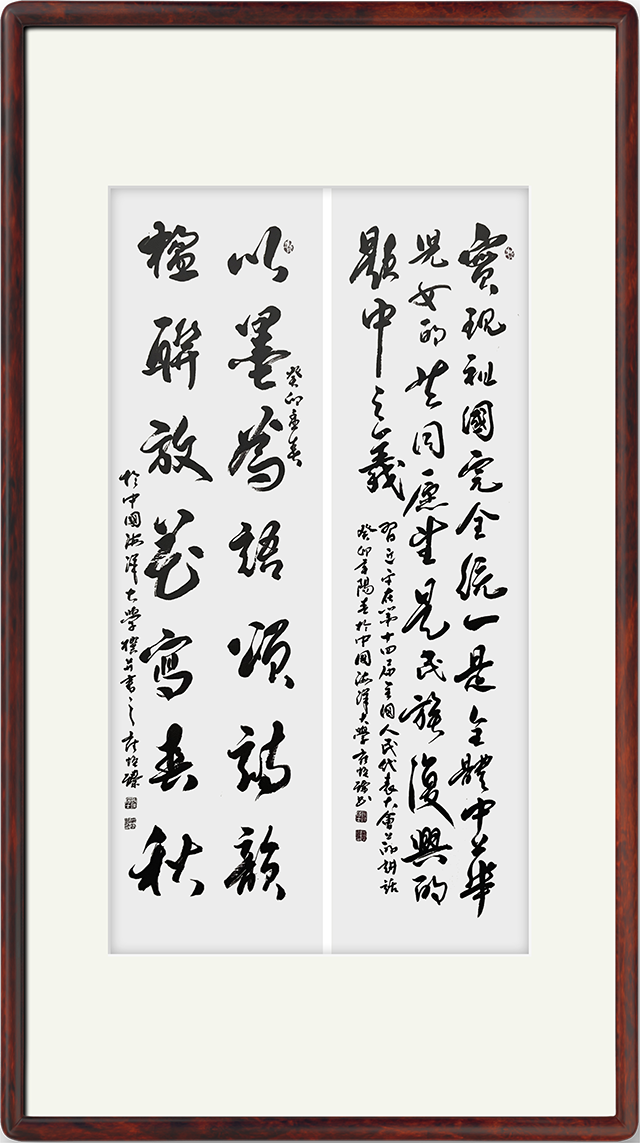 實現祖國完全統一是全體中華
兒女的共同愿望是民族復興的
題中之義
習近平在第十四屆全国人民代表大會上的講話
癸卯年陽春於中国海洋大學
以墨為語頌詩韻
癸卯孟春
楹聯放花寫春秋
於中国海洋大學撰并書之